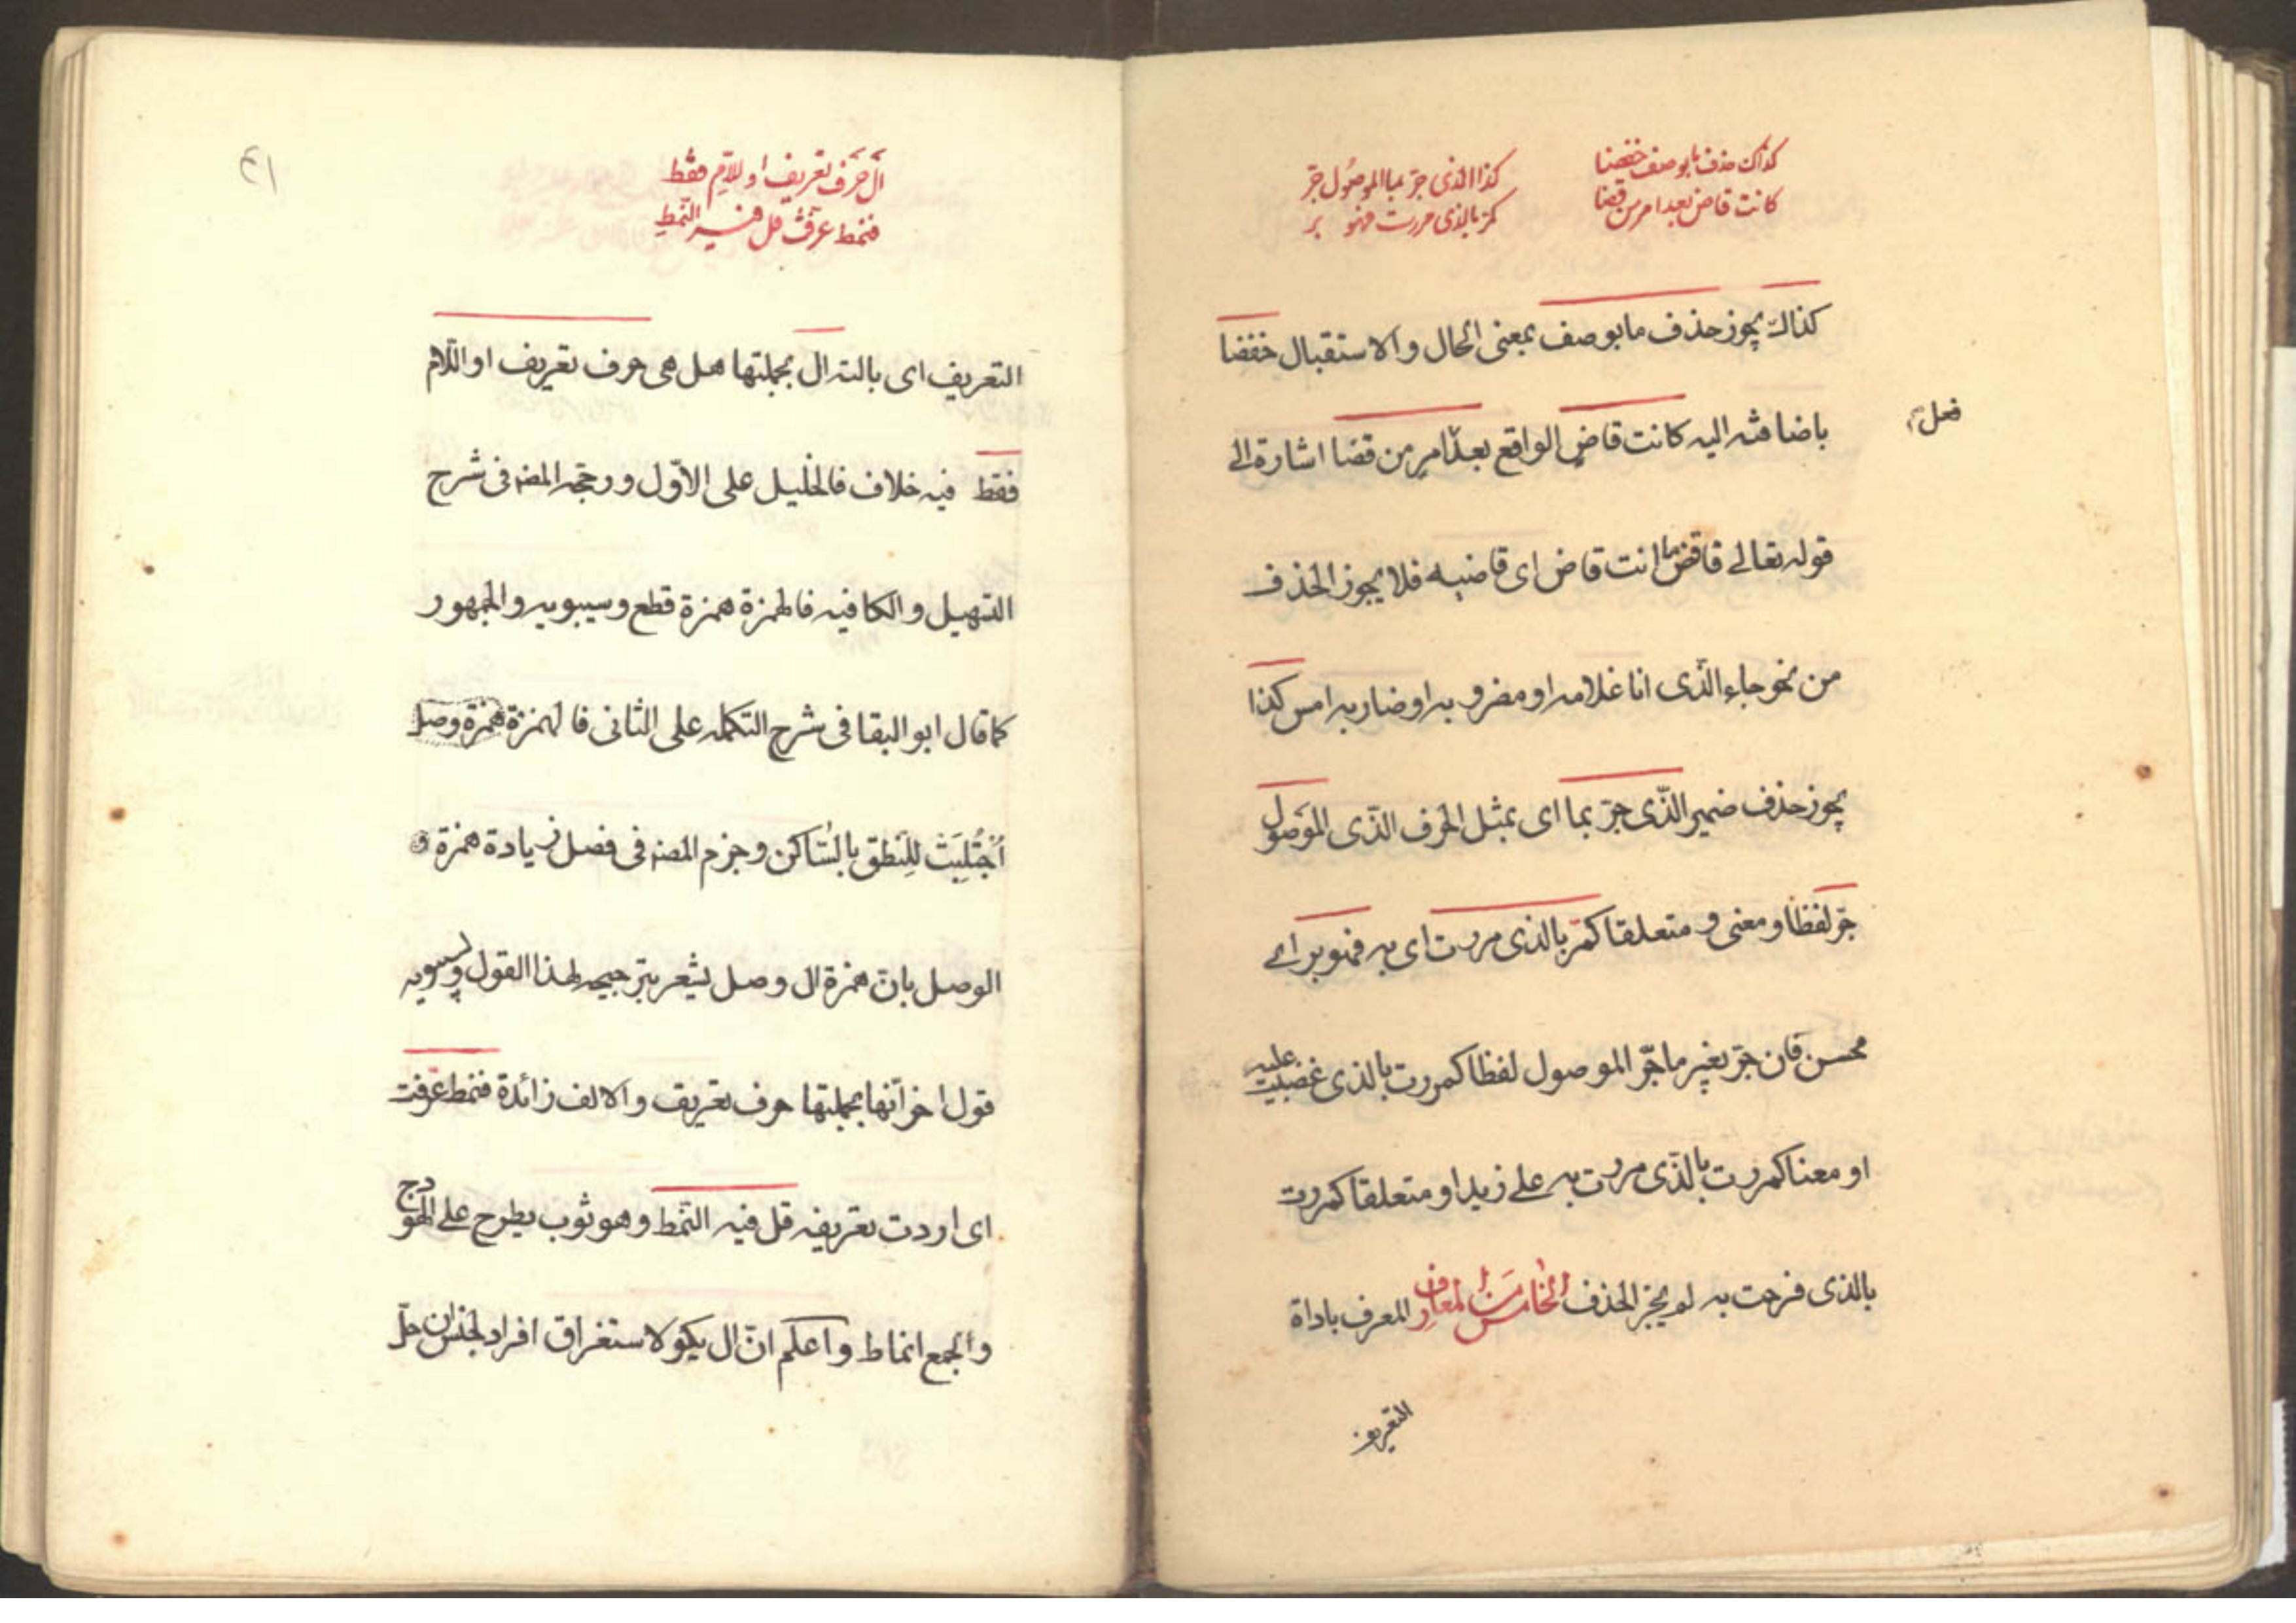 كذاك حذف ما بوصف خفضا
كانت قاض بعد امر من قضا
كذا الذى جرّ بما الموصُول جرّ
كمرّ بالذى مررت فهو بر
كذاك يجوز حذف ما بوصف بمعنى الحال والاستقبال خفضا
باضافته اليه كانت قاضٍ الواقع بعد امرٍ من قضا اشارة الى
فعل
قوله تعالى فاقض ما انت قاض اى قاضيه فلا يجوز الحذف
من نحو جاء الّذى انا غلامه او مضروبه او ضاربه امس كذا
يجوز حذف ضمير الذّى جرّ بما اى بمثل الحرف الذّى الموَصول
جرّ لفظا و معنى و متعلقا كمرّ بالذى مررت اى به فهو بر اى
محسن فان جرّ بغير ما جرّ الموصول لفظا كمررت بالذى غضبت عليه
او معنا كمررت بالذّى مررت به على زيد او متعلقا كمررت
بالذى فرحت به لم يجز الحذف الخامس من المعارف المعرف باداة
التعريف
٤١
الَ حَرف تعريف او للاّمِ فقط
فنمط عرّفتَ قل فيه النّمط
التعريف اى بالته ال بجملتها هل هى حرف تعريف او اللّام
فقط فيه خلاف فالخليل على الاوّل و رجّحه المصه فى شرح
التسهيل و الكافيه فالهمزة همزة قطع و سيبويه و الجمهور
كما قال ابو البقا فى شرح التكمله على الثانى فالهمزة همزة وصل
اُجْتُلِبَتْ لِلنطق بالسّاكن و جزم المصه فى فصل زيادة همزة
الوصل بانّ همزة ال وصل يشعر بترجيحه لهذا القول و لسيبويه
قول اخر انّها بجملتها حرف تعريف و الالف زائدة فنمط عرّفت
اى اردت تعريفه قل فيه النّمط و هو ثوب يطرح على الهودج
و الجمع انماط و اعلم انّ ال يكو لاستغراق افراد لجنس ان حلّ